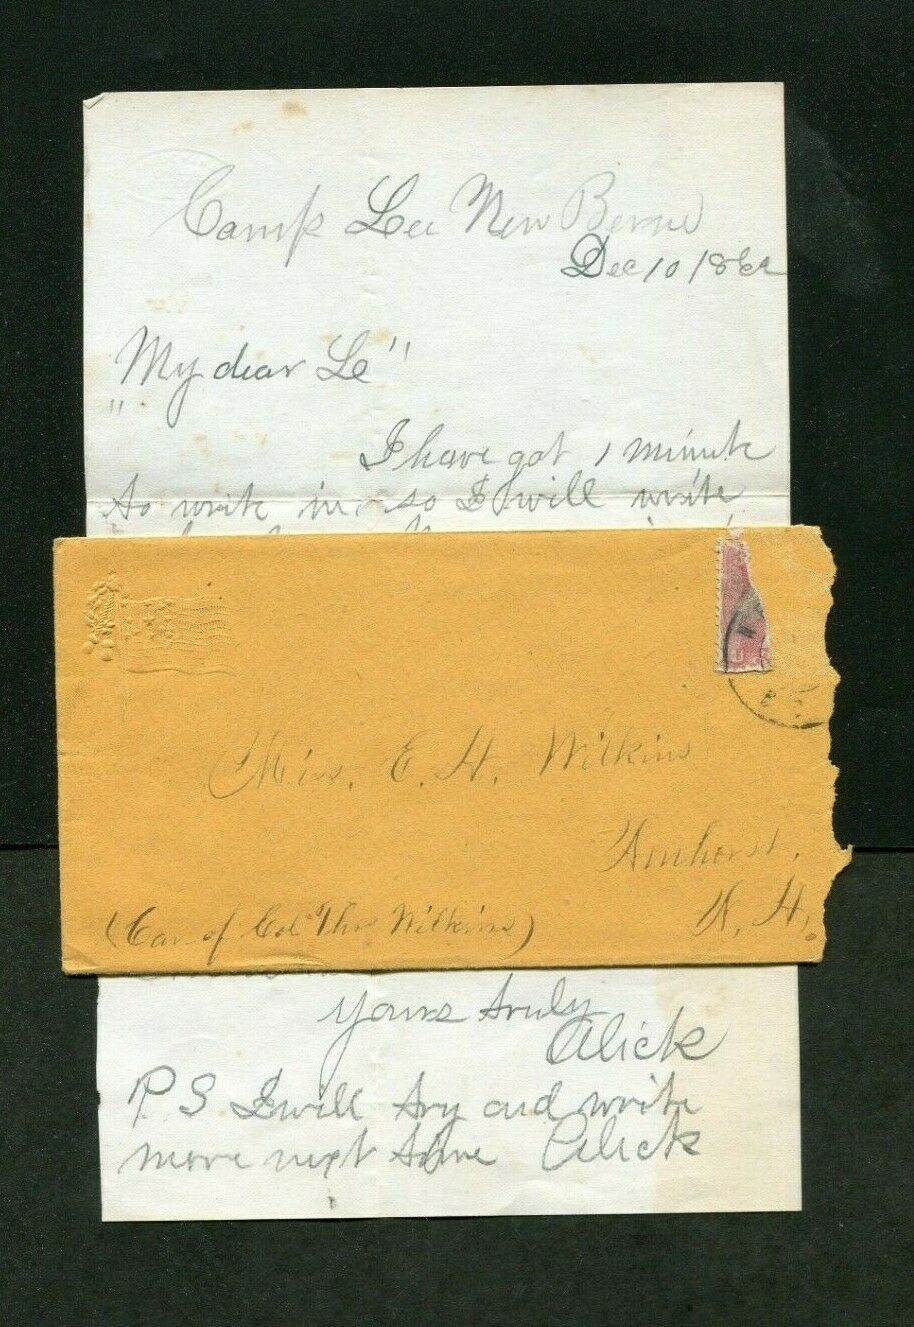 Camp Lee New Berne
Dec 10 1862
"My dear Le"
I have got 1 minute
to write in, so I will write
Miss. E. H. Wilkins
Amherst,
N. H.
(Car of Col Thos Wilkins)
Yours truly
Alick
P. S I will try and write
more next time Alick